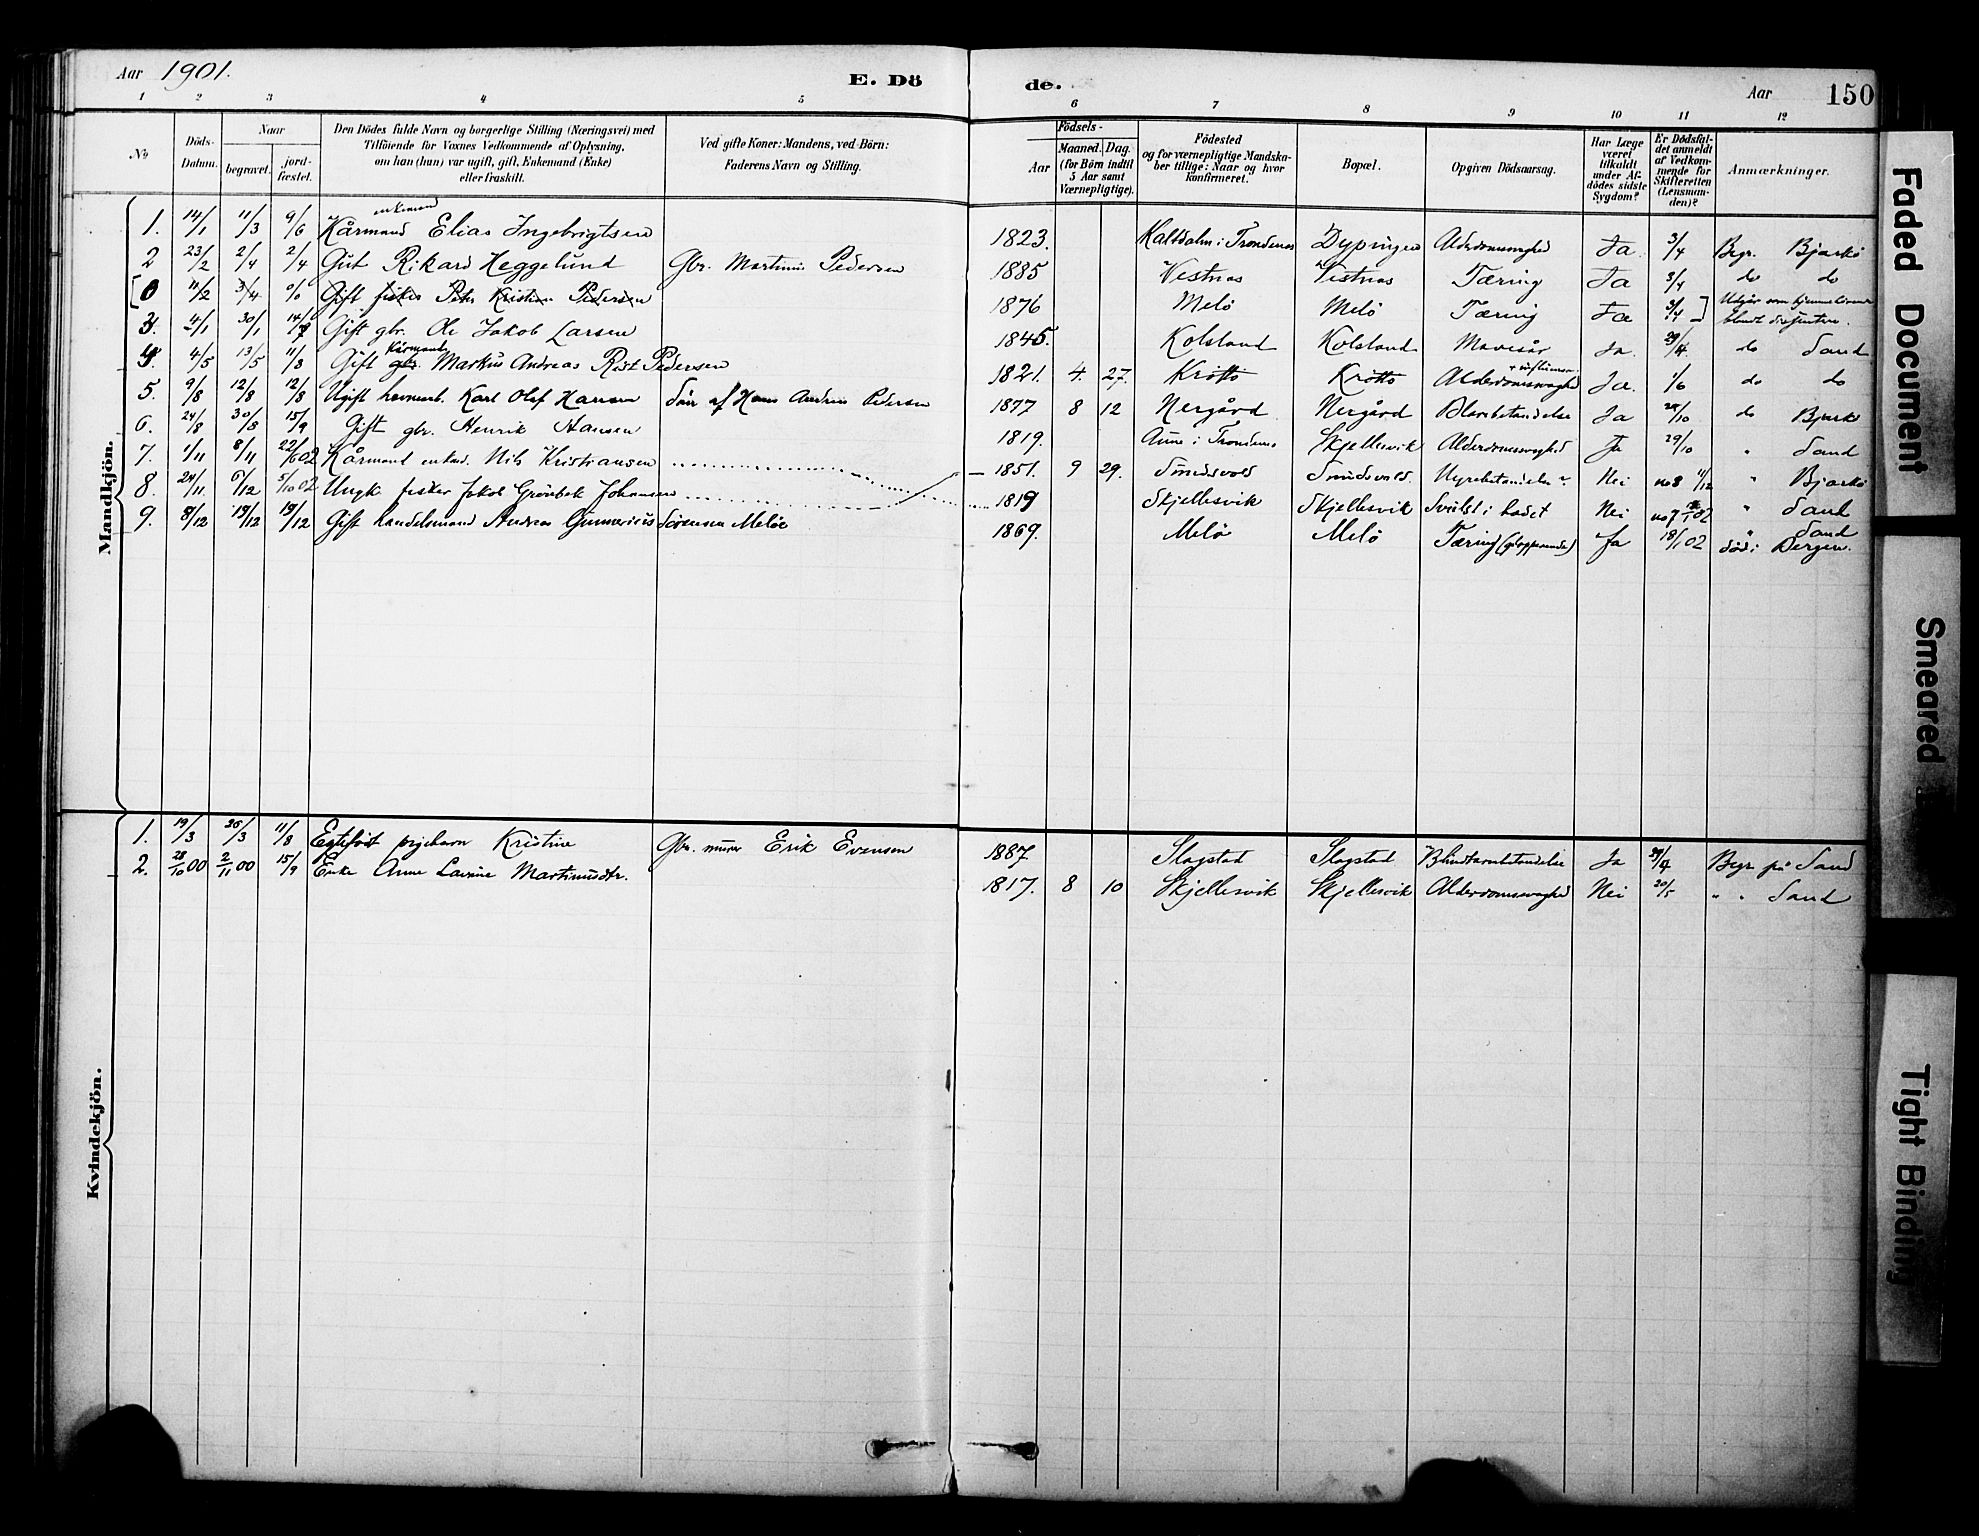 Aar 1901.
E. Dö
de.
Aar
150
1 2 3 4 5 6 7 8 9 10 11 12
No
Döds-Datum.
Naar
begravet.
jord-fæstet.
Den Dödes fulde Navn og borgerlige Stilling (Næringsvei) med
Tilföiende for Voxnes Vedkommende af Oplysning,
om han (hun) var ugift, gift, Enkemand (Enke)
eller fraskilt.
Ved gifte Koner: Mandens, ved Börn:
Faderens Navn og Stilling.
Födsels-
Aar
Maaned.
Dag.
(for Börn indtil
5 Aar samt
Værnepligtige).
Födested
og for værnepligtige Mandska-
ber tillige: Naar og hvor
konfirmeret.
Bopæl.
Opgiven Dödsaarsag.
Har Læge
været
tilkaldt
under Af-
dödes sidste
Sygdom?
Er Dödsfal-
det anmeldt
af Vedkom-
mende for
Skifteretten
(Lensman-
den)?
Anmærkninger.
Mandkjön.
enkemand
1. 14/1 11/3 9/6 Kårmand Elias Ingebrigtsen 1823. Kaltdalen i Trondenes Dypingen Alderdomssvaghed Ja. 3/4 Begr. Bjarkö
2 23/2 2/4 2/4 Gut Rikard Heggelund Gbr. Martinus Pedersen 1885 Vestnes Vestnes Tæring Ja 3/4 do do
[0 11/2 3/4 0/0 Gift fisker Peter Kristian Pedersen 1876 Melö Melö Tæring Ja 3/4 ] Utgår som hjemmehörende
blandt dissentere.
3. 4/1 30/1 14/7 Gift gbr. Ole Jakob Larsen 1845. Kolsland Kolsland Mavesår Ja. 29/4. do Sand
Kårmand
4. 4/5 13/5 11/8 Gift gbr. Markus Andreas Rist Pedersen 1821. 4. 27. Kröttö Kröttö Alderdomssvaghed Ja. 1/6 do do
5. 9/8 12/8 12/8 Ugift Karl Olaf Hansen Sön af Hans Andreas Pedersen 1877 8 12 Nergård Nergård Blærebetændelse Ja 28/10 do Bjarkö
6. 24/8 30/8 15/9 Gift gbr. Henrik Hansen 1819. Aune i Trondenes Skjellesvik Alderdomssvaghed Ja 29/10 " Sand
7. 1/11 8/11 22/6 02 Kårmand enkem. Nils Kristiansen 1851. 9 29. Smedsvold Smedsvold. Nyrebetændelse Nei no 8 11/12 " Bjarkö
8. 24/11. 6/12 5/10 02 Ungk. fisker Jakob Grönbek Johansen 1819 Skjellesvik Skjellesvik Svulst i hodet Nei no 7 02 " Sand
9. 8/12 19/12 19/12 Gift handelsmand Andreas Gunnerius Sörensen Melöe 1869. Melö Melö Tæring (galopperende) Ja 18/1 02 " Sand
död i Bergen.
Kvindekjön.
1. 19/3 26/3 11/8 Egtefödt pigebarn Kristine Gbr. murer Erik Evensen 1887 Slagstad Slagstad Blindtarmbetændelse Ja 29/4 Begr på Sand
2. 28/10 00 2/11 00 15/9 Enke Anne Lavine Martinusdtr. 1817. 8 10 Skjellesvik Skjellesvik Alderdomssvaghed Nei 20/5 " " Sand
Faded Document
Smeared
Tight Binding